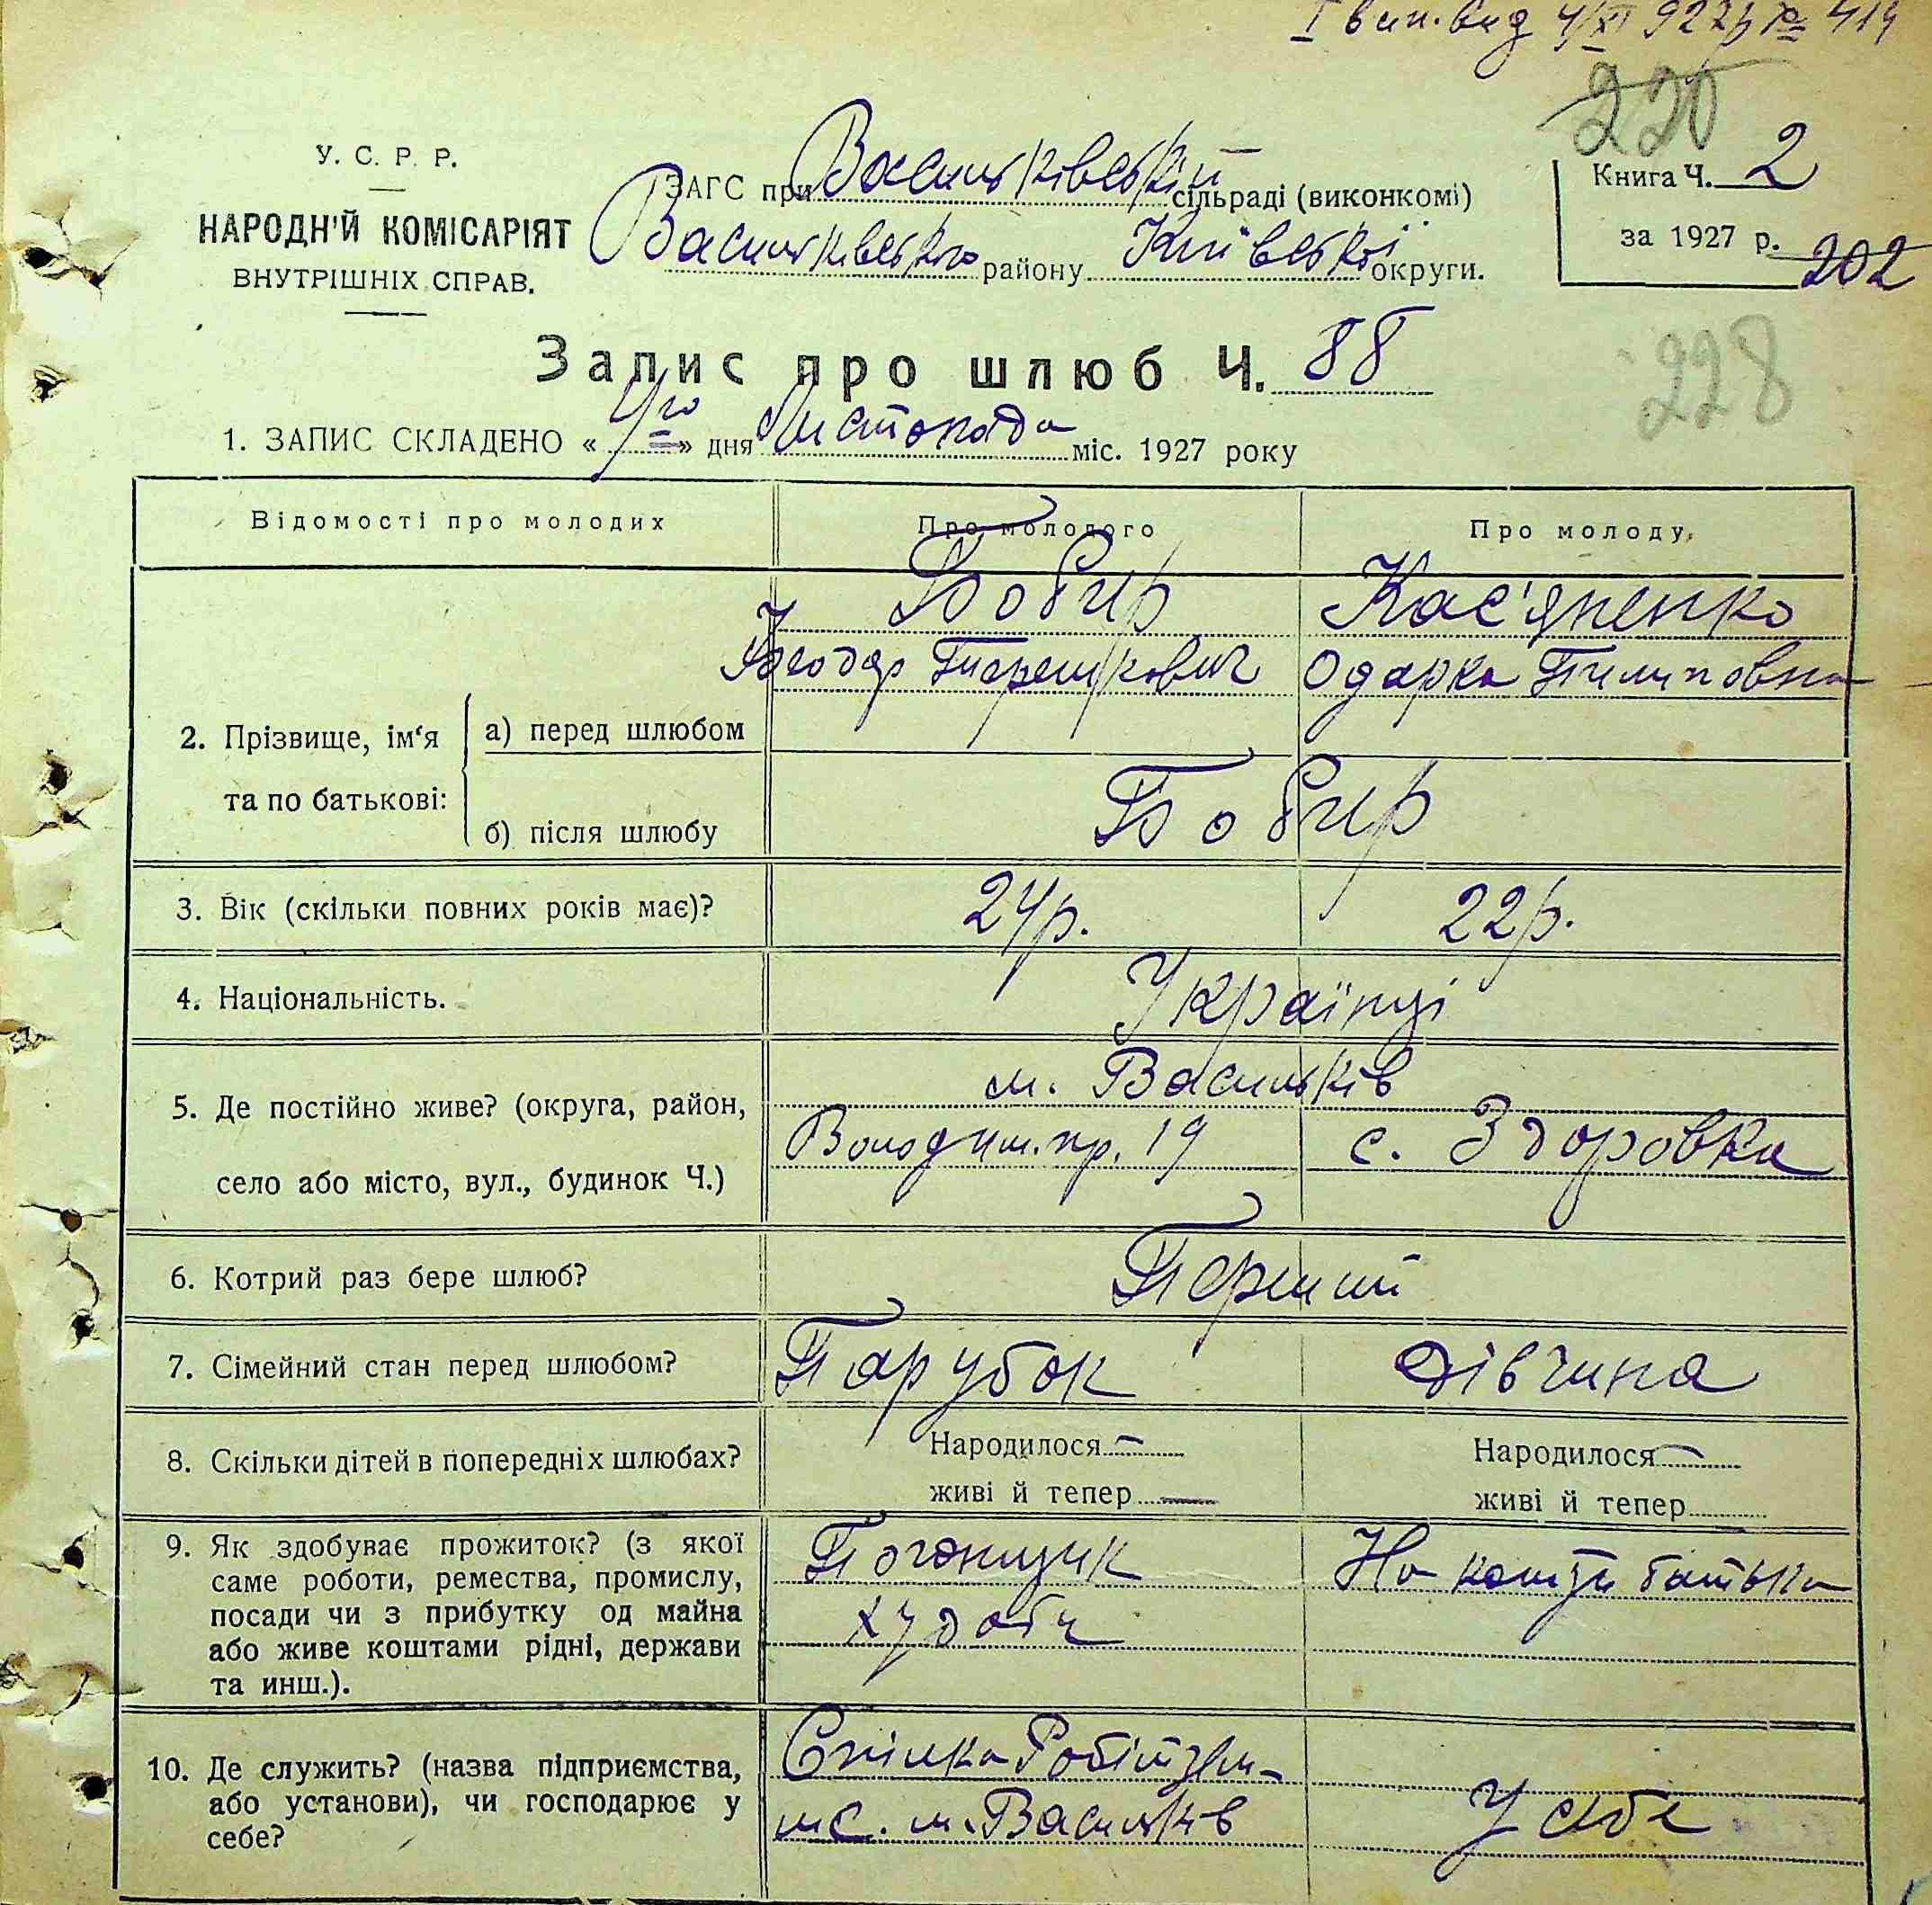 І вип. вид 4/XI 927р № 414
220
У. С. Р. Р.
НАРОДН'Й КОМІСАРІЯТ
ВНУТРІШНІХ СПРАВ.
ЗАГС при Васильківській сільраді (виконкомі)
Васильківського району Київської округи.
Книга Ч. 2
за 1927 р.
202
228
Запис про шлюб Ч. 88
1. ЗАПИС СКЛАДЕНО « 4го » дня Листопада міс. 1927 року
Відомості про молодих
Про молодого
Про молоду
2. Прізвище, ім‘я та по батькові:
а) перед шлюбом
Бобир
Терешкович
Кас'яненко
Одарка Пилиповна
б) після шлюбу
Бобир
3. Вік (скільки повних років має)?
24р.
22р.
4. Національність.
Українці
5. Де постійно живе? (округа, район,
село або місто, вул., будинок Ч.)
м. Васильків
Володим. пр. 19
с. Здоровка
6. Котрий раз бере шлюб?
Перший
7. Сімейний стан перед шлюбом?
Парубок
Дівчина
8. Скільки дітей в попередніх шлюбах?
Народилося –
живі й тепер —
Народилося –
живі й тепер
9. Як здобуває прожиток? (з якої
саме роботи, ремества, промислу,
посади чи з прибутку од майна
або живе коштами рідні, держави
та инш.).
Погонщик
худоби
На кошти батька
10. Де служить? (назва підприємства,
або установи), чи господарює у
себе?
Спілка
м. Васильків
У себе